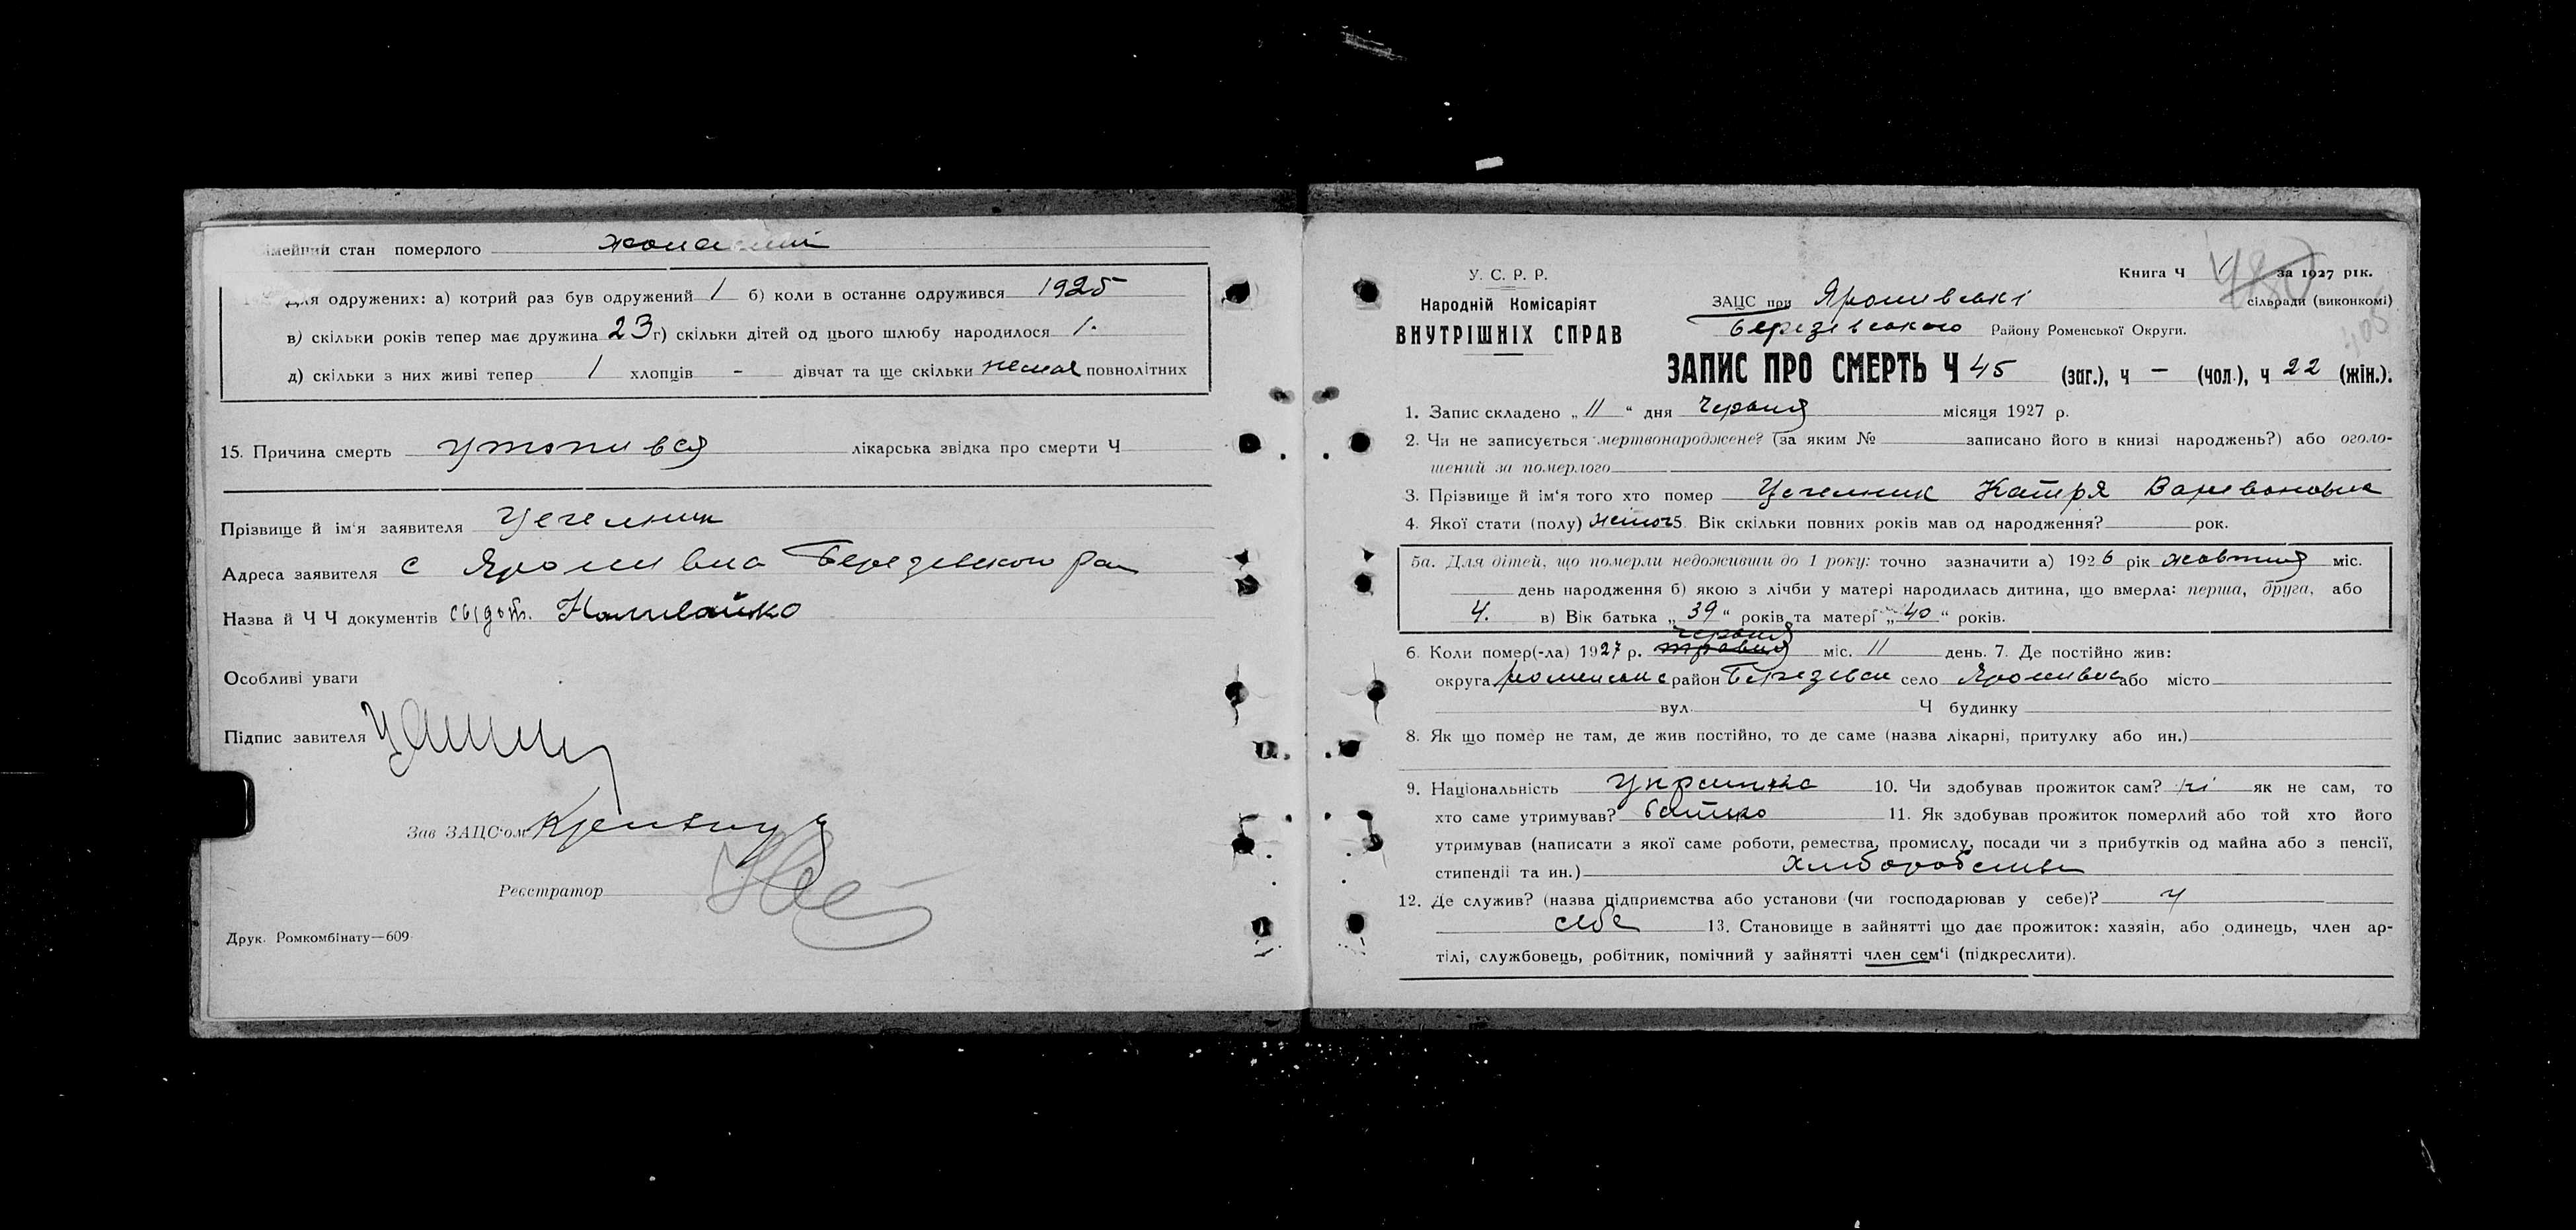 імейний стан померлого жонатий
Для одружених: а) котрий раз був одружений 1 б) коли в останнє одружився 1925
в) скільки років тепер має дружина 23 г) скільки дітей од цього шлюбу народилося 1.
д) скільки з них живі тепер 1 хлопців - дівчат та ще скільки немає повнолітних
15. Причина смерть утопився лікарська звідка про смерти Ч
Прізвище й ім'я заявителя Цегельник
Адреса заявителя с Ярошивка Березівського рай
Назва й Ч Ч документів свідот. Наливайко
Особливі уваги
Підпис завителя
Зав ЗАЦС'ом
Реєстратор
Друк. Ромкомбінату—609
У. С. Р. Р.
Народній Комісаріят
ВНУТРІШНІХ СПРАВ
Книга Ч 1 за 1927 рік.
480
ЗАЦС при Ярошивські сільради (виконкомі)
Березівського Району Роменської Округи.
405
ЗАПИС ПРО СМЕРТЬ Ч 45 (заг.), ч — (чол.), ч 22 (жін.).
1. Запис складено „ 11 “ дня червня місяця 1927 р.
2. Чи не записується мертвонароджене? (за яким № записано його в книзі народжень?) або оголо-
шений за померлого
3. Прізвище й ім'я того хто помер Цегельник Катря Варивановна
4. Якої стати (полу) жіноч 5. Вік скільки повних років мав од народження? рок.
5а. Для дітей, що померли недоживши до 1 року: точно зазначити а) 1926 рік жовтня міс.
день народження б) якою з лічби у матері народилась дитина, що вмерла: перша, друга, або
4. в) Вік батька „ 39 “ років та матері „ 40 “ років.
червня
6. Коли помер(-ла) 1927 р. травня міс. 11 день. 7. Де постійно жив:
округа Роменська район Березівськ село Ярошивка або місто
вул. Ч будинку
8. Як що помер не там, де жив постійно, то де саме (назва лікарні, притулку або ин.)
9. Національність Українка 10. Чи здобував прожиток сам? ні як не сам, то
хто саме утримував? батько 11. Як здобував прожиток померлий або той хто його
утримував (написати з якої саме роботи, ремества, промислу, посади чи з прибутків од майна або з пенсії,
стипендії та ин.) хліборобством
12. Де служив? (назва підприємства або установи (чи господарював у себе)? у
себе 13. Становище в зайнятті що дає прожиток: хазяін, або одинець, член ар-
тілі, службовець, робітник, помічний у зайнятті член сем'ї (підкреслити).